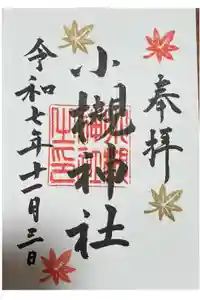 奉拝
小槻神社
令和七年十一月三日